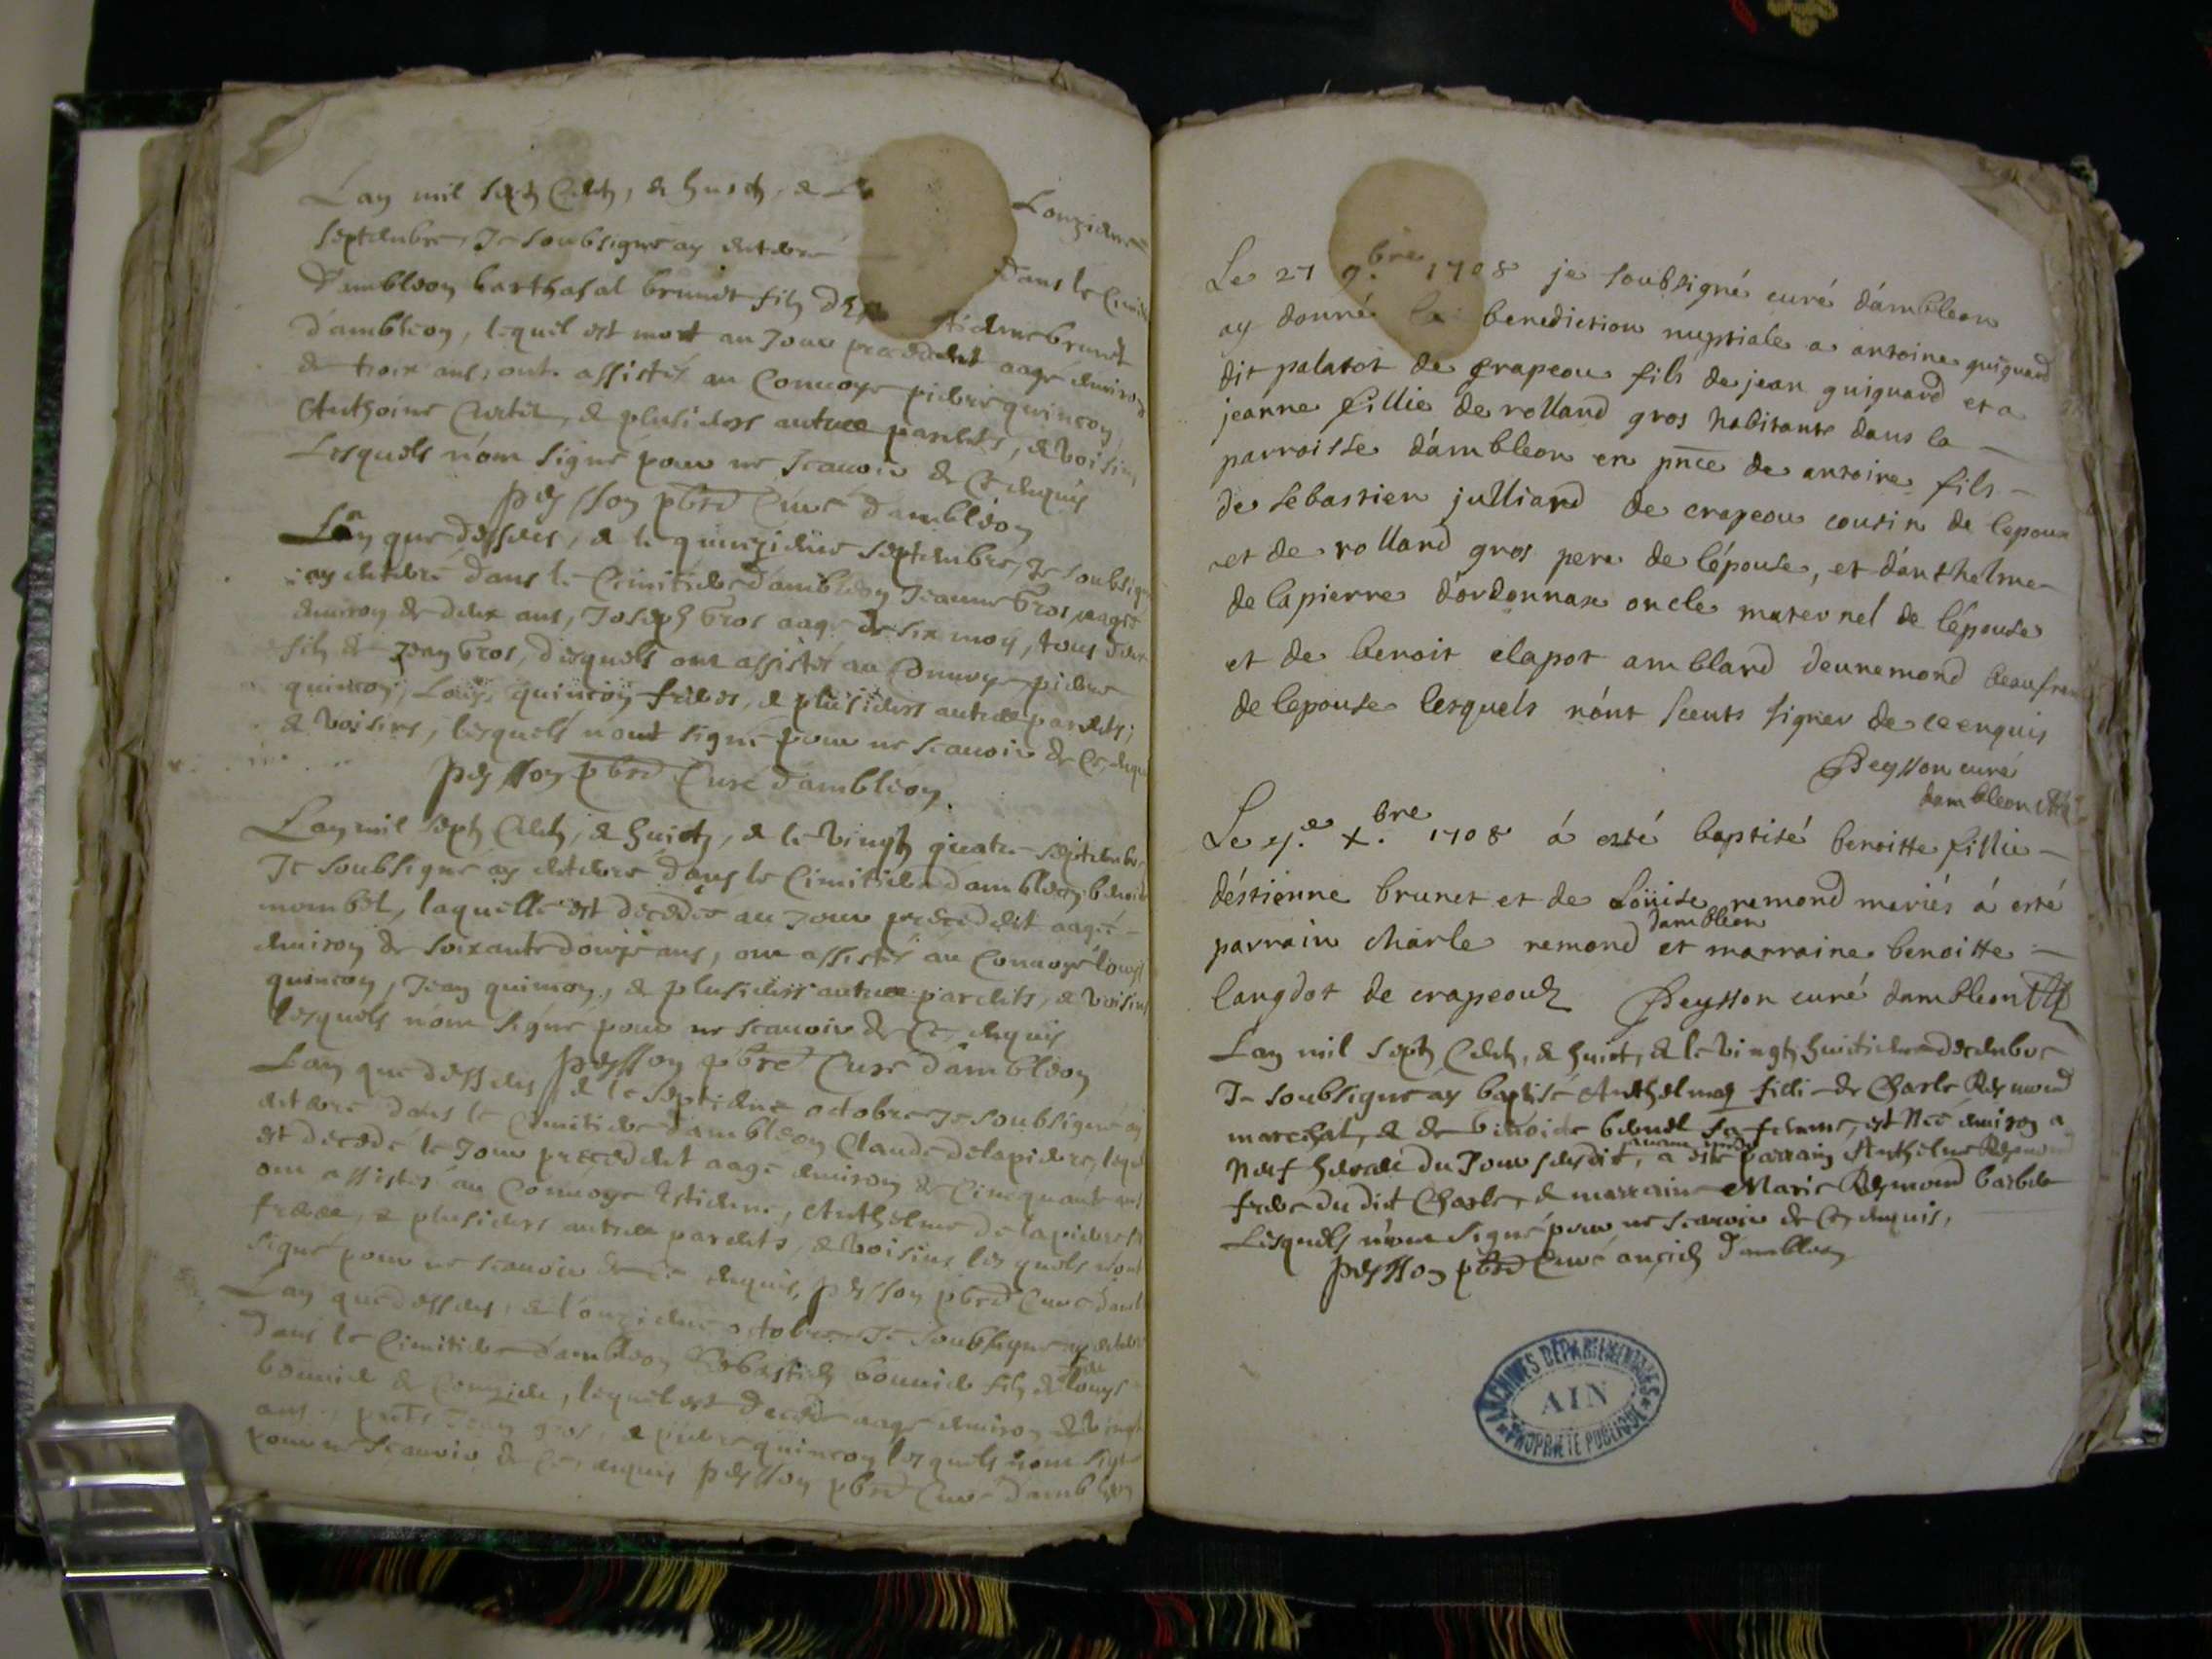 Lan mil sept Cent, & huict, & Lonzieme
septembre, Je soubsigne ay enterre dans le Cimit
d'ambleon barthasal brunet fils d'Estienne brunet
d'ambleon, lequel est mort au Jour precedent aagé environ
de troix ans, ont assistés au Convoye pierre quincon,
Anthoine Curtet, & plusieurs autres parents, & voisins
Lesquels n'ont signé pour ne scavoir de Ce enquis
peysson pbre Curé d'ambleon
Lan que dessus, & le quinzieme septembre, Je soubsigné
ay enterré dans le Cimitiere d'ambleon Jeanne Gros, aagée
environ de deux ans, Joseph Gros aagé de six moy, tous deux
fils de Jean Gros, desquels ont assistés au Convoye pierre
quincon, Louys quincon freres, & plusieurs autres parents,
& voisins, lesquels n'ont signé pour ne scavoir de Ce, enquis
peysson pbre Curé d'ambleon.
Lan mil sept Cent, & huict, & le vingt quatre septembre
Je soubsigne ay enterré dans le Cimitiere d'ambleon benoite
mombel, laquelle est decedée au Jour precedent aagée
environ de soixante douze ans, ont assistés au Convoye Louys
quincon, Jean quincon, & plusieurs autres parents, & voisins
lesquels n'ont signé pour ne scavoir de Ce, enquis
peysson pbre Curé d'ambleon
Lan que dessus & le septieme octobre Je soubsigné ay
enterre dans le Cimitiere d'ambleon Claude delapierre, lequel
est decedé le Jour precedent aagé environ de Cinequante ans
ont assistés au Convoye Estienne, Anthelme delapierre
freres, & plusieurs autres parents, & voisins lesquels n'ont
signé pour ne scavoir de Ce enquis, peysson pbre Curé d'amb
Lan que dessus, & l'onzieme octobre Je soubsigne ay enterré
dans le Cimitiere d'ambleon Sebastien bonnier fils de Louys
bonnier de Conzieu, lequel est decedé aagé environ de vingt
ans, pnts Jean gros, & pierre quincon lesquels n'ont signé
pour ne scavoir de Ce, enquis peysson pbre Curé d'ambleon
Le 27 9.bre 1708 je soubsigné curé d'ambleon
ay donné la benediction nuptiale a antoine guignard
dit palatot de crapeou fils de jean guignard et a
jeanne fillie de rolland gros habitante dans la –
parroisse d'ambleon en pnce de antoine fils –
de sebastien julliard de crapeou cousin de lepoux
et de rolland gros pere de l'épouse, et d'anthelme
de lapierre d'ordonnax oncle maternel de l'épouse
et de benoit clapot amblard deuremond beaufrere
de lepouse lesquels n'ont sceuts signer de ce enquis
Peysson curé
dambleon
Le 4.e X.bre 1708 á esté baptisé benoitte fillie –
d'éstienne brunet et de Loüise remond mariés á esté
dambleon
parrain charle remond et marraine benoitte –
langdot de crapeouz Peysson curé dambleon
Lan mil sept Cent, & huict, & le vingt huitieme decembre
Je soubsigne ay baptisé Anthelmaz filie de Charle Reymond
marechal, & de benoite benuel sa femme, est Née environ a
Neuf heures du Jour susdit, a esté parrain Anthelme Reymond
frere du dict Charle, & marraine Marie Reymond barbete
Lesquels n'ont signé pour ne scavoir de Ce, enquis,
peysson pbre Curé ancien d'ambleon
ARCHIVES DÉPARTEMENTALES
AIN
PROPRIÉTÉ PUBLIQUE